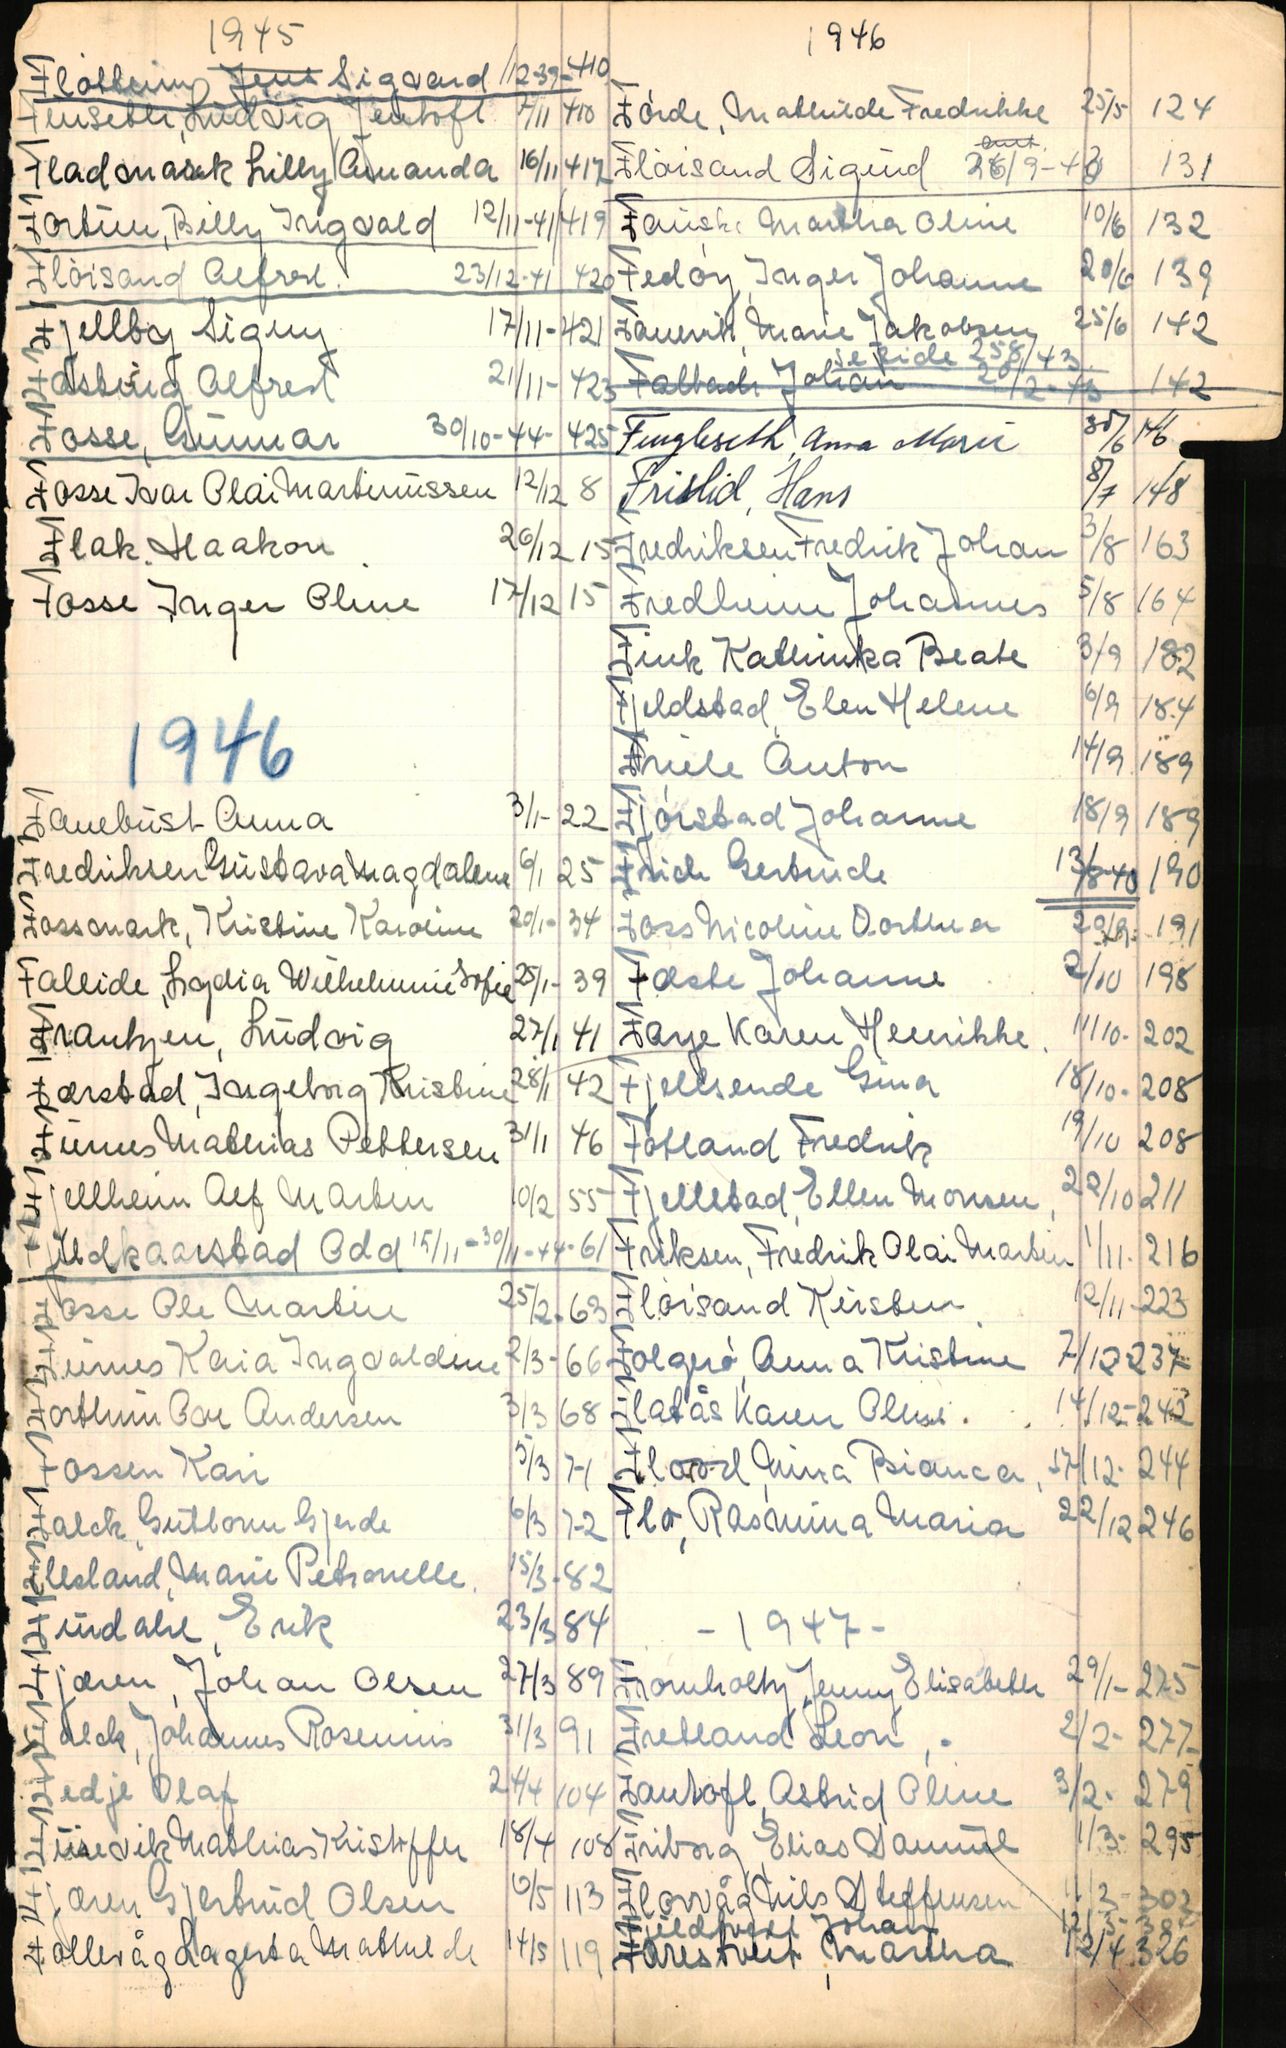 1945
Fløtheim Jens Sigvard 1/12-39-410
Fensebk, Ludvig Jentoft 7/11 410
Fladmark Lilly Amanda 16/11 417
Fortun, Billy Ingvald 12/11-41 419
Fløisand Alfred. 23/12-41 420
Fjellby Signy 17/11-421
Fasting Alfred 21/11-423
Fosse, Gunnar 30/10-44-425
Fosse Ivar Olai Martinussen 12/12 8
Flak. Haakon 26/12 15
Fosse Inger Oline 17/12 15
1946
Fanebust Anna 3/1-22
Fredriksen Gustava Magdalene 6/1 25
Fossmark, Kristine Karoline 20/1-34
Falleide, Lydia Wilhelmine Sofie 25/1-39
Frantzen, Ludvig 27/1 41
Færstad, Ingeborg Kristine 28/1 42
Furnes Mathias Pettersen 31/1 46
Fjellheim Alf Martin 10/2 55
Fjeldkaarstad Odd 15/11-30/11-44-61
Fosse Ole Martin 25/2-63
Furnes Kaia Ingvaldine 2/3-66
Forthun Andersen 3/3 68
Fossen Kari 5/3 71
Falck, Guttorm Gjerde 6/3 72
Flesland, Marie Petronelle. 15/3-82
Furdahl, Erik 23/3 84
Fjæren, Johan Olsen 27/3 89
Falck, Johannes Rosenius 31/3 91
Fedje Olaf 24/4 104
Furevik Mathias Kristoffer 18/4 108
Fjæren Gjertrud Olsen 6/5 113
Follevåg Lagerta Mathilde 14/5 119
1946
Førde, Mathilde Fredrikke 25/5 124
Fløisand Sigurd 28/9-43 131
Fauske Martha Oline 10/6 132
Fedøy, Inger Johanne 20/6 139
Marie Jakobsen 25/6 142
se side 258/43
Johan 20/2-43 142
Anna Marie 30/6 146
Fristid, Hans 8/7 148
Fredriksen Fredrik Johan 3/8 163
Fredheim Johannes 5/8 164
Fink Kathinka Beate 3/9 182
Fjeldstad, Elen Helene 6/9 184
Friele Anton 14/9 189
Fjørstad Johanne 18/9 189
Frich Gertrude 13/8-40 190
Foss Nicoline Dorthea 20/9-191
Fæste Johanne 2/10 198
Faye Karen Henrikke. 11/10-202
Fjellsende Gina 18/10-208
Fotland Fredrik 19/10 208
Fjellstad, Ellen Monsen, 22/10 211
Friksen, Fredrik Olai Martin 1/11-216
Fløisand Kirsten 12/11-223
Folgerø, Anna Kristine 7/12-237
Flatås Karen Oline. 14/12-242
Flood, Nina Bianca, 17/12-244
Flo, Rasmina Maria 22/12 246
- 1947 -
Fromholtz, Jenny Elisabeth 29/1-275
Fretland Leon, . 2/2-277
Fantoft Astrid Oline 3/2-279
Friborg Elias Samuel 1/3-295
Florvåg Nils Steffensen 11/3-302
Johan 12/3-
Førestveit, Martha 12/4. 326